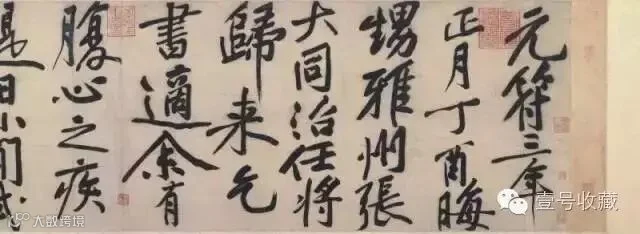 元符三年
正月丁酉晦
甥雅州張
大同治任將
歸来乞
書適余有
腹心之疾
是日小閒試
壹号收藏
大数跨境